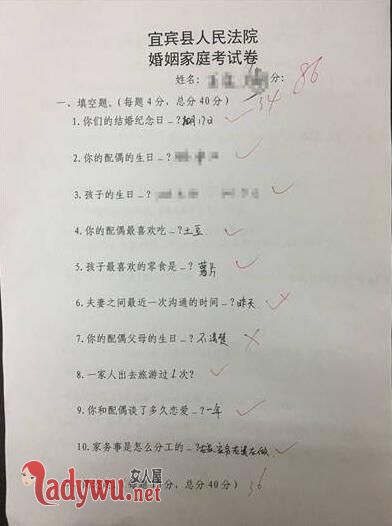 宜宾县人民法院
婚姻家庭考试卷
姓名： 分： 86
一、填空题。（每题4分，总分40分） 34
1.你们的结婚纪念日_？ 月17日
2.你的配偶的生日_？
3.孩子的生日_？
4.你的配偶最喜欢吃_？土豆
5.孩子最喜欢的零食是_？薯片
6.夫妻之间最近一次沟通的时间_？昨天
7.你的配偶父母的生日_？不清楚
8.一家人出去旅游过1次？
9.你和配偶谈了多久恋爱_？一年
10.家务事是怎么分工的_？ 在做
总分40分） 36
女人屋
ladywu.net